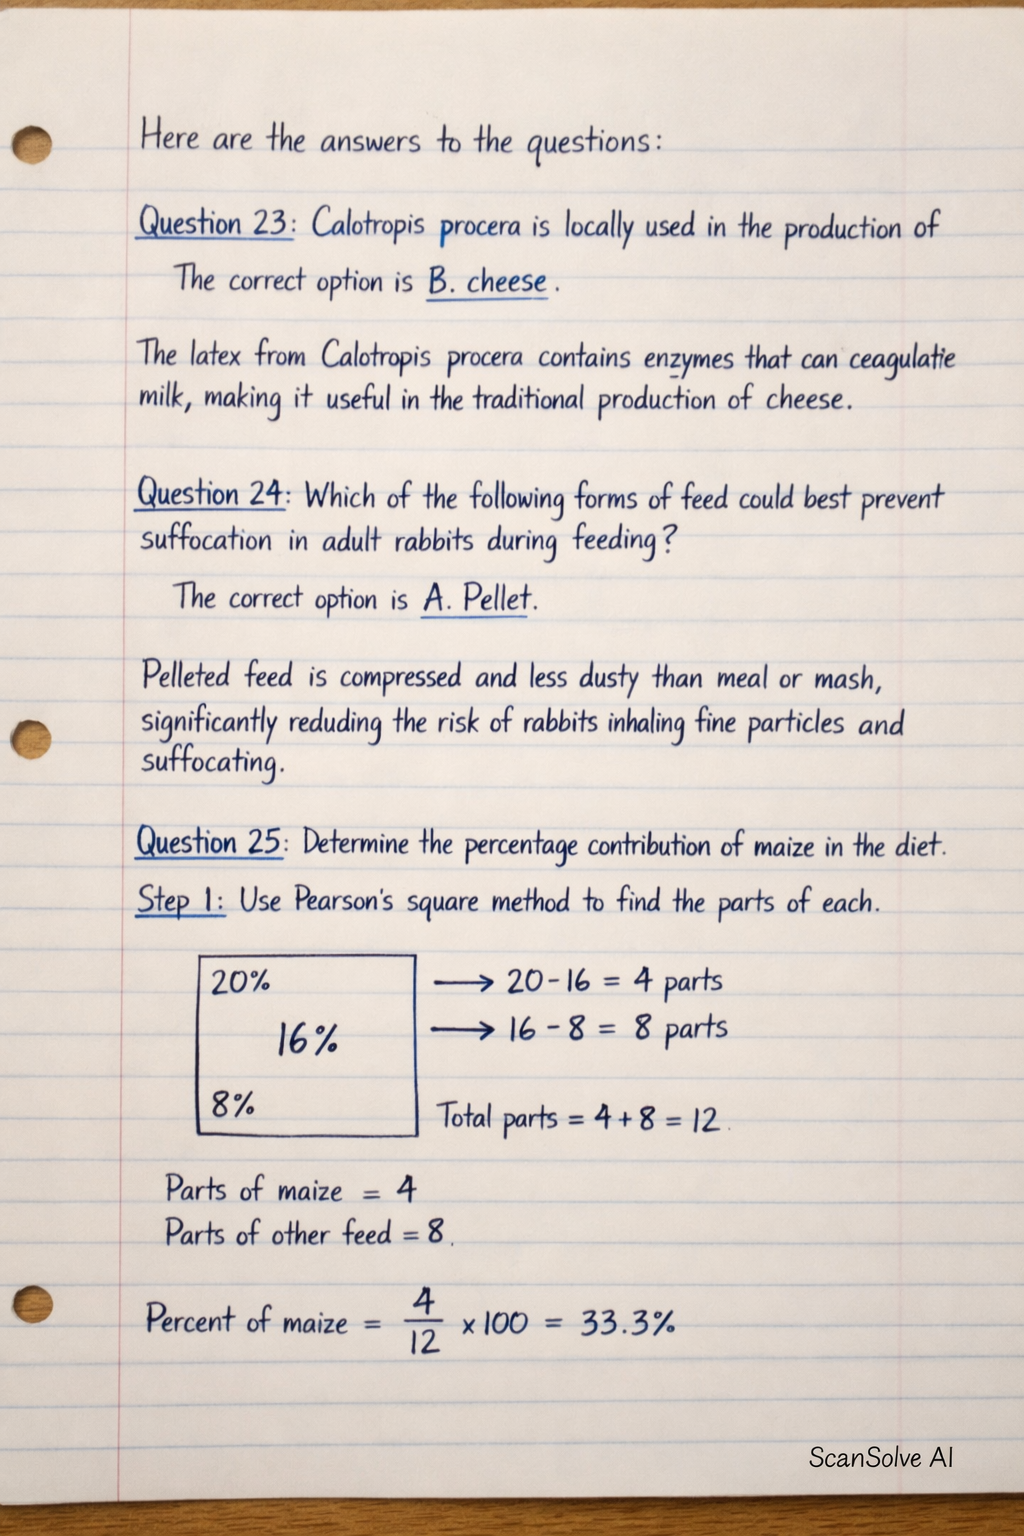 Here are the answers to the questions:
Question 23: Calotropis procera is locally used in the production of
The correct option is B. cheese.
The latex from Calotropis procera contains enzymes that can ceagulatie
milk, making it useful in the traditional production of cheese.
Question 24: Which of the following forms of feed could best prevent
suffocation in adult rabbits during feeding?
The correct option is A. Pellet.
Pelleted feed is compressed and less dusty than meal or mash,
significantly reduding the risk of rabbits inhaling fine particles and
suffocating.
Question 25: Determine the percentage contribution of maize in the diet.
Step 1: Use Pearson's square method to find the parts of each.
20% → 20-16 = 4 parts
16% → 16-8 = 8 parts
8%
Total parts = 4+8 = 12.
Parts of maize = 4
Parts of other feed = 8.
Percent of maize = 4/12 x 100 = 33.3%
ScanSolve AI